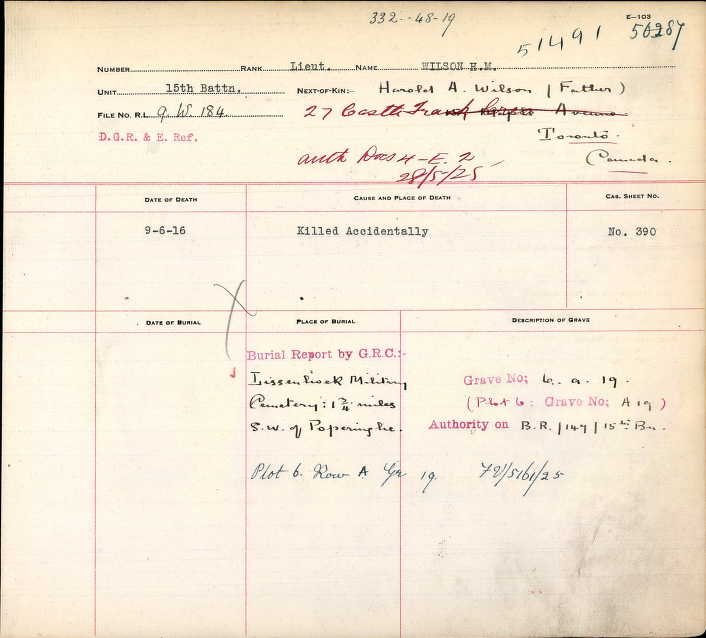 332--48-19
E-103
51491 56287
NUMBER RANK Lieut. NAME WILSON H.M.
UNIT 15th Battn. NEXT-OF-KIN:- Harold A. Wilson (Father)
FILE NO. R.L. 9. W. 184. 27 Castle Frank Avenue
D.G.R. & E. Ref. Toronto.
auth Docs 4-E. 2 Canada.
28/5/25
DATE OF DEATH CAUSE AND PLACE OF DEATH CAS. SHEET NO.
9-6-16 Killed Accidentally No. 390
DATE OF BURIAL PLACE OF BURIAL DESCRIPTION OF GRAVE
Burial Report by G.R.C.:-
Lissenhoek Military Grave No; 6. a. 19.
Cemetery: 1 3/4 miles (Plot 6: Grave No; A19)
S.W. of Poperinghe. Authority on B.R./147/15th Bn.
Plot 6. Row A Gr 19. 72/5161/25